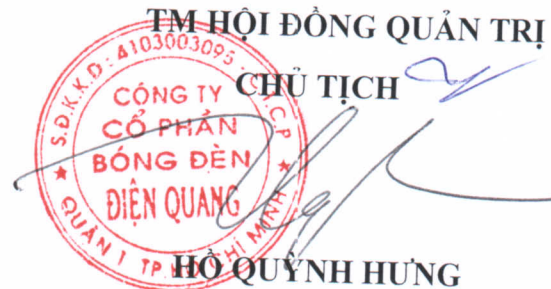 TM HỘI ĐỒNG QUẢN TRỊ
CHỦ TỊCH
S.Đ.K.K.D: 4103003095
C.P
CÔNG TY
CỔ PHẦN
BÓNG ĐÈN
ĐIỆN QUANG
QUẬN 1 TP. CHÍ MINH
HỒ QUỲNH HƯNG